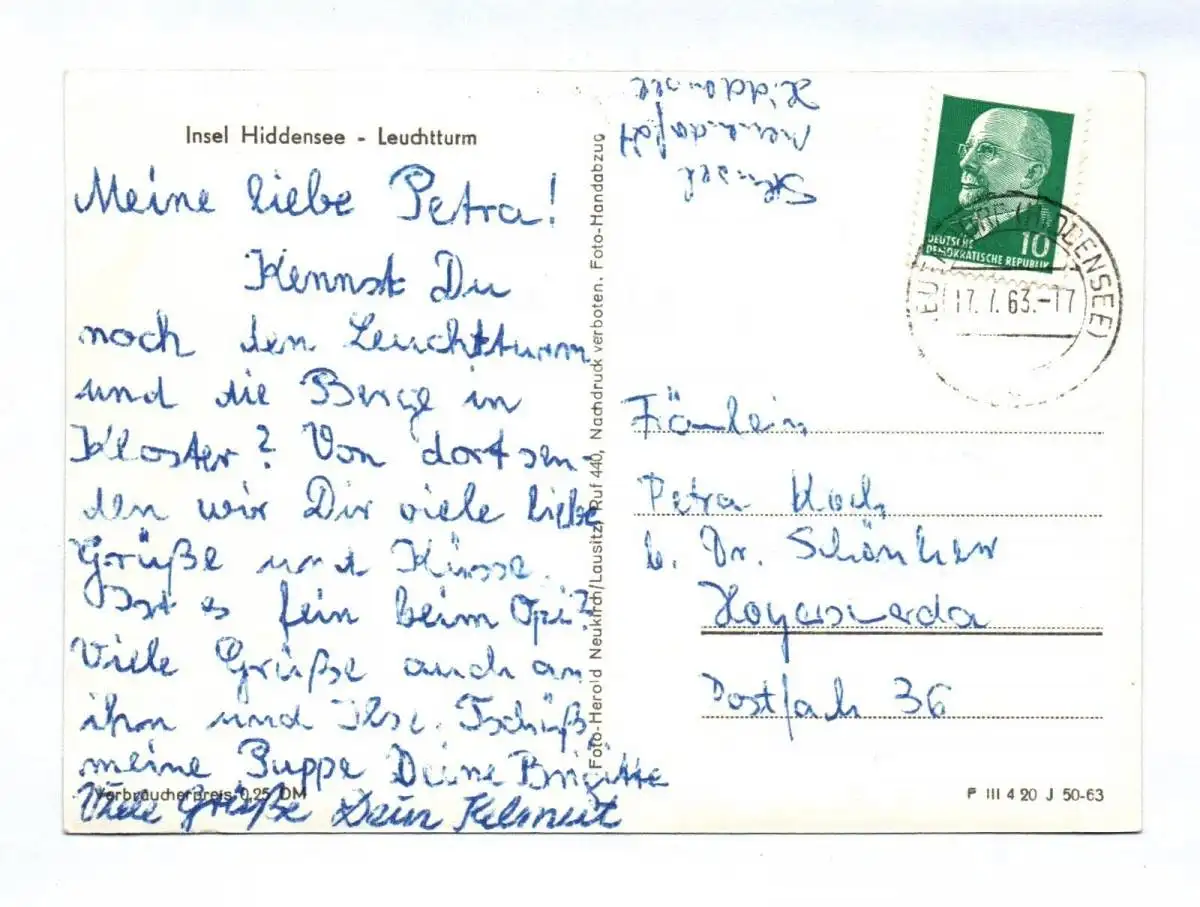 Insel Hiddensee - Leuchtturm
Meine liebe Petra!
Kennst Du
noch den Leuchtturm
und die Berge in
Kloster? Von dort sen-
den wir Dir viele liebe
Grüße und Küsse.
Ist es fein beim Opi?
Viele Grüße auch an
ihn und Ilse. Tschüß,
meine Puppe Deine Brigitte
Verbraucherpreis 0,25 DM
Viele Grüße Dein Helmut
Foto-Herold Neukirch/Lausitz, Ruf 440, Nachdruck verboten. Foto-Handabzug
Neuendorf
Hiddensee
DEUTSCHE
DEMOKRATISCHE REPUBLIK
10
NEUENDORF (HIDDENSEE)
17.7.63.-17
Fräulein
Petra Koch
b. Dr. Schönherr
Hoyerswerda
Postfach 36
F III 4 20 J 50-63